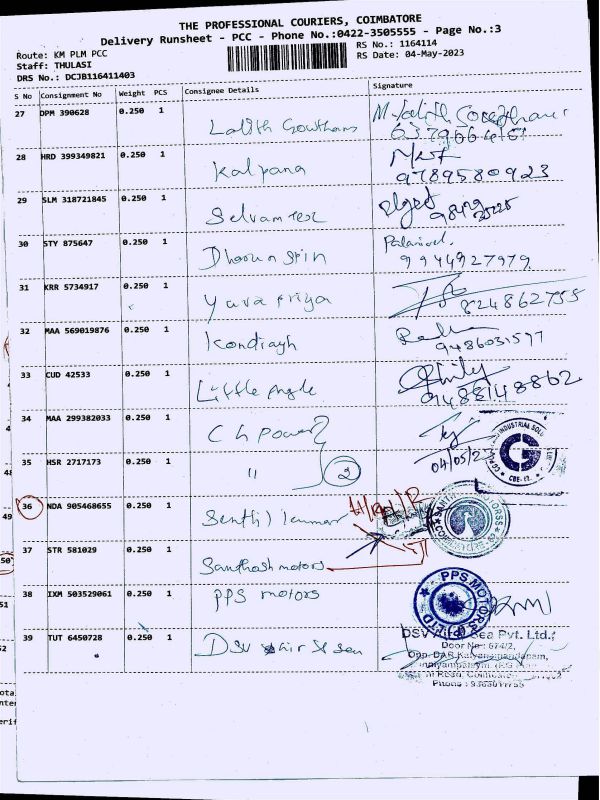 THE PROFESSIONAL COURIERS, COIMBATORE
Delivery Runsheet - PCC - Phone No.:0422-3505555 - Page No.:3
Route: KM PLM PCC
RS No.: 1164114
Staff: THULASI
RS Date: 04-May-2023
DRS No.: DCJB116411403
S No Consignment No Weight PCS Consignee Details Signature
27 DPM 390628 0.250 1 Lalith Gowtham
28 HRD 399349821 0.250 1 Kalpana
9789580923
29 SLM 318721845 0.250 1 Selvam Tex
30 STY 875647 0.250 1 Palanivel.
9944927979
31 KRR 5734917 0.250 1 Yuva Priya
824862755
32 MAA 569019876 0.250 1
9486031577
33 CUD 42533 0.250 1 Little Angle
9488148862
34 MAA 299382033 0.250 1 Ch power
35 HSR 2717173 0.250 1 " 2
04/05/23
INDUSTRIAL
G
36 NDA 905468655 0.250 1 Senthil kumar
37 STR 581029 0.250 1 Santhosh motors
38 IXM 503529061 0.250 1 PPS motors
PPS MOTORS
39 TUT 6450728 0.250 1 DSV Air & Sea
DSV Air & Sea Pvt. Ltd.,
Door No: 674/2,